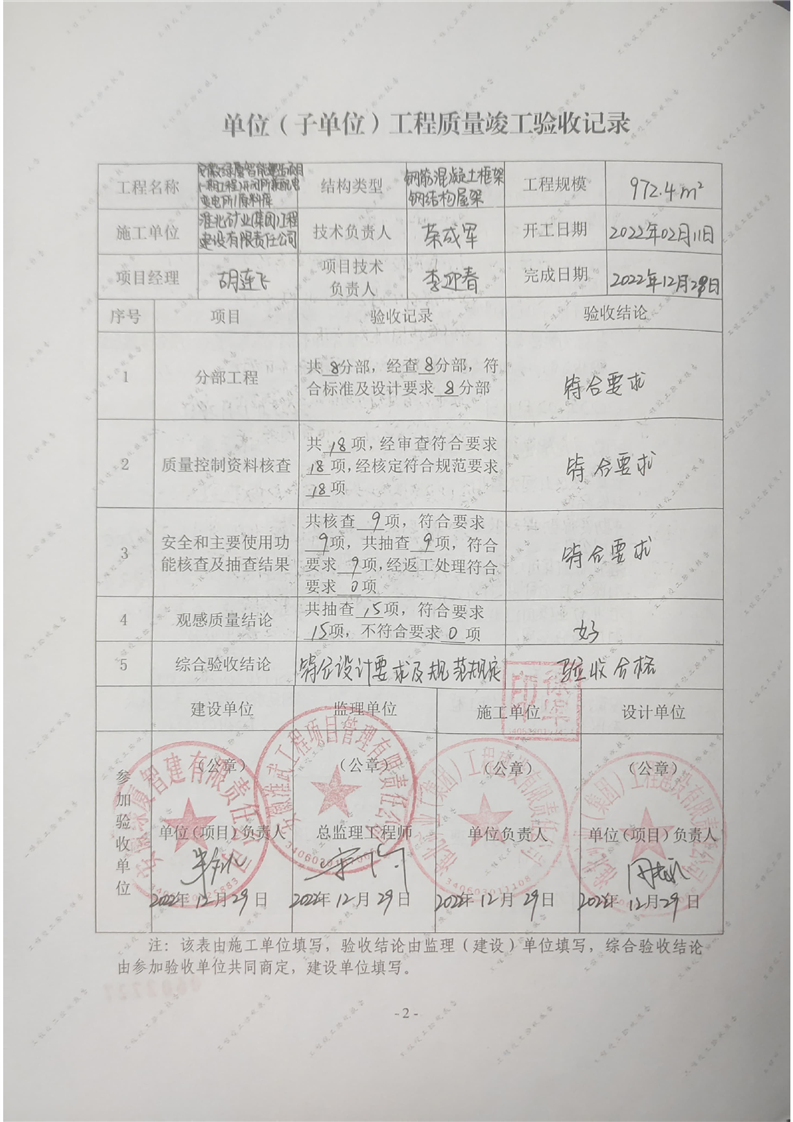 单位（子单位）工程质量竣工验收记录
工程名称
结构类型
钢筋混凝土框架
钢结构屋架
工程规模
972.4m²
施工单位
淮北矿业(集团)工程
建设有限责任公司
技术负责人
荣成军
开工日期
2022年02月11日
项目经理
胡连飞
项目技术
负责人
李迎春
完成日期
2022年12月29日
序号 项目 验收记录 验收结论
1
分部工程
共8分部，经查8分部，符
合标准及设计要求8分部
符合要求
2
质量控制资料核查
共18项，经审查符合要求
18项，经核定符合规范要求
18项
符合要求
3
安全和主要使用功
能核查及抽查结果
共核查9项，符合要求
9项，共抽查9项，符合
要求9项，经返工处理符合
要求0项
符合要求
4
观感质量结论
共抽查15项，符合要求
15项，不符合要求0项
好
5
综合验收结论
符合设计要求及规范规定
验收合格
参加验收单位
建设单位 监理单位 施工单位 设计单位
（公章） （公章） （公章） （公章）
单位（项目）负责人 总监理工程师 单位负责人 单位（项目）负责人
2022年12月29日 2022年12月29日 2022年12月29日 2022年12月29日
注：该表由施工单位填写，验收结论由监理（建设）单位填写，综合验收结论
由参加验收单位共同商定，建设单位填写。
- 2 -